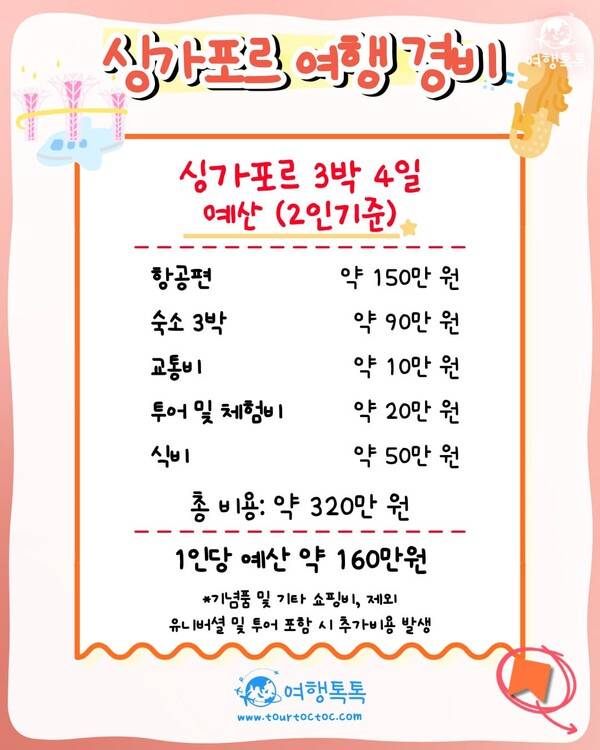 여행톡톡
싱가포르 여행 경비
싱가포르 3박 4일
예산 (2인기준)
항공편 약 150만 원
숙소 3박 약 90만 원
교통비 약 10만 원
투어 및 체험비 약 20만 원
식비 약 50만 원
총 비용: 약 320만 원
1인당 예산 약 160만원
*기념품 및 기타 쇼핑비, 제외
유니버셜 및 투어 포함 시 추가비용 발생
여행톡톡
www.tourtoctoc.com